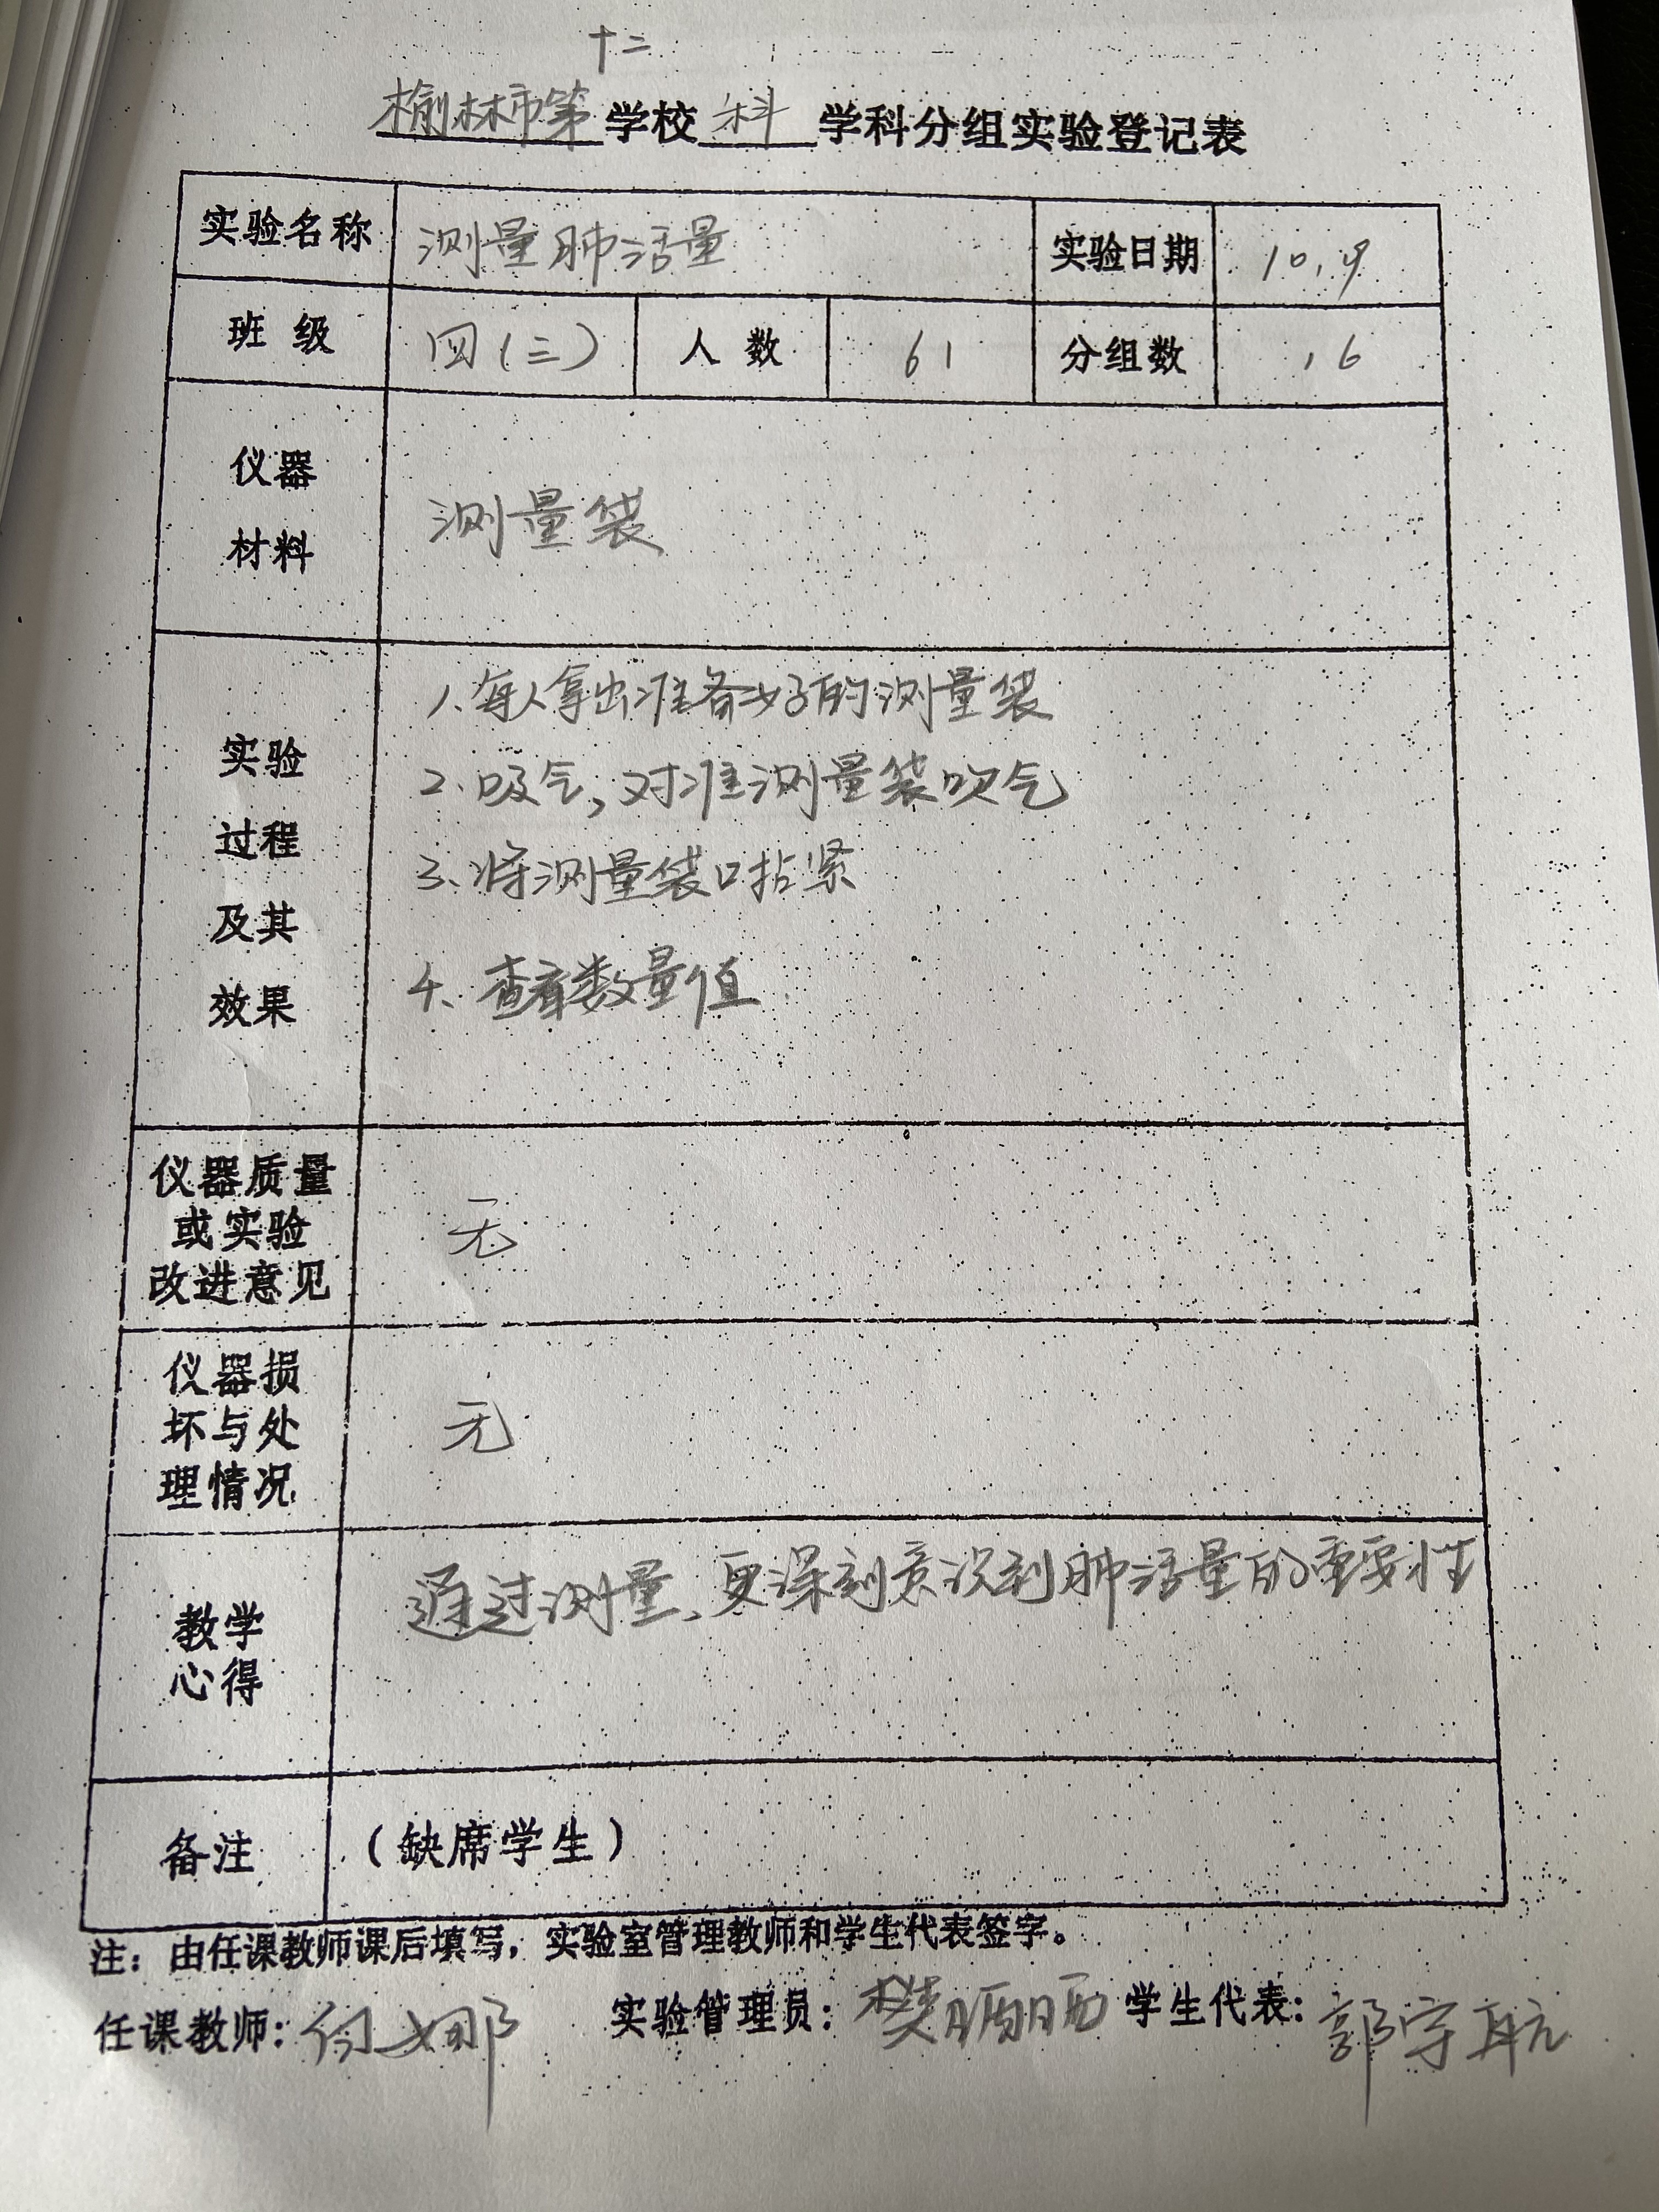 十二
榆林市第学校科学科分组实验登记表
实验名称 测量肺活量 实验日期 10.9
班级 四(三) 人数 61 分组数 16
仪器
材料
测量袋
实验
过程
及其
效果
1、每人拿出准备好的测量袋
2、吸气,对准测量袋吹气
3、将测量袋口拈紧
4、查看数量值
仪器质量
或实验
改进意见
无
仪器损
坏与处
理情况
无
教学
心得
通过测量、更深刻意识到肺活量的重要性
备注 (缺席学生)
注:由任课教师课后填写,实验室管理教师和学生代表签字。
任课教师: 实验管理员: 学生代表: